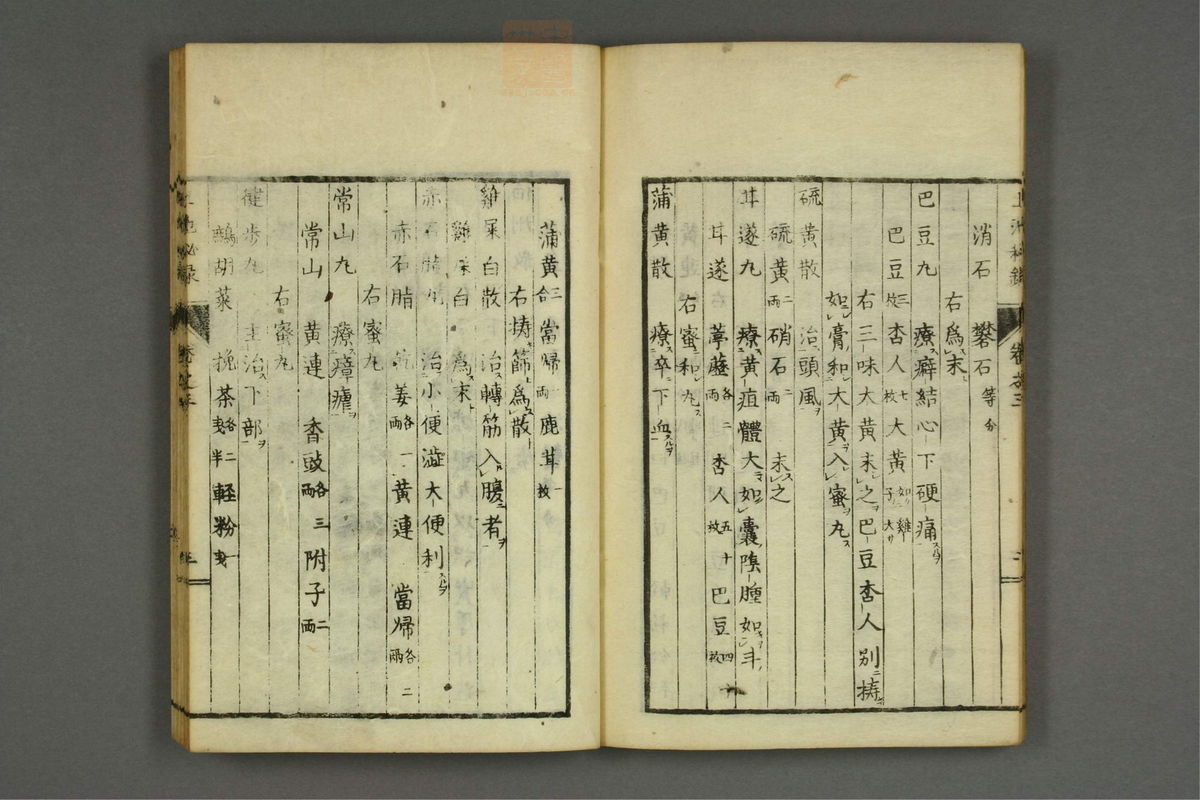 消石　礬石等分
右為末
巴豆丸　療癖結心下硬痛スルヲ
巴豆三枚　杏人七枚　大黄如雞子大
右三味大黄末之巴豆杏人別擣
如膏和大黄入蜜丸
硫黄散　治頭風
硫黄二両　硝石二両　末之
甘遂丸　療黄疸體大如囊陰腫如斗
甘遂　葶藶各二両　杏人五十枚　巴豆四十枚
右蜜和丸
蒲黄散　療卒下血
蒲黄三合　當帰一両　鹿茸一枚
右擣篩為散
雞屎白散　治轉筋入腹者
雞屎白　為末
赤石脂丸　治小便澁大便利スルヲ
赤石脂　乾姜各一両　黄連　當帰各二両
右蜜丸
常山丸　療瘴瘧
常山　黄連　香豉各三両　附子二両
右蜜丸
健歩丸　主治下部
鷓胡菜　挽茶各二戔半　軽粉一戔